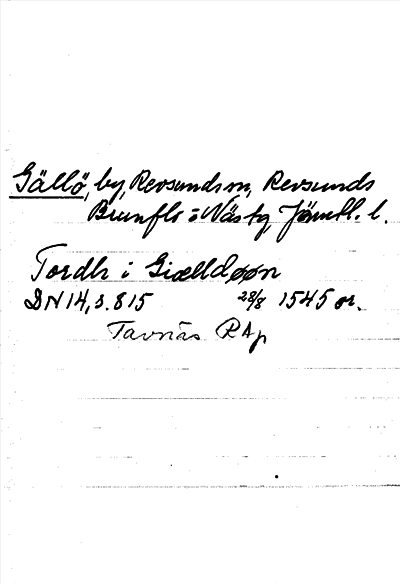 Gällö, by, Revsunds sn, Revsunds
Brunflo o Näs tg, Jämtl. l.
Tordh i Giælldøøn
DN 14, s. 815 28/8 1545 or.
Tavnäs RAp